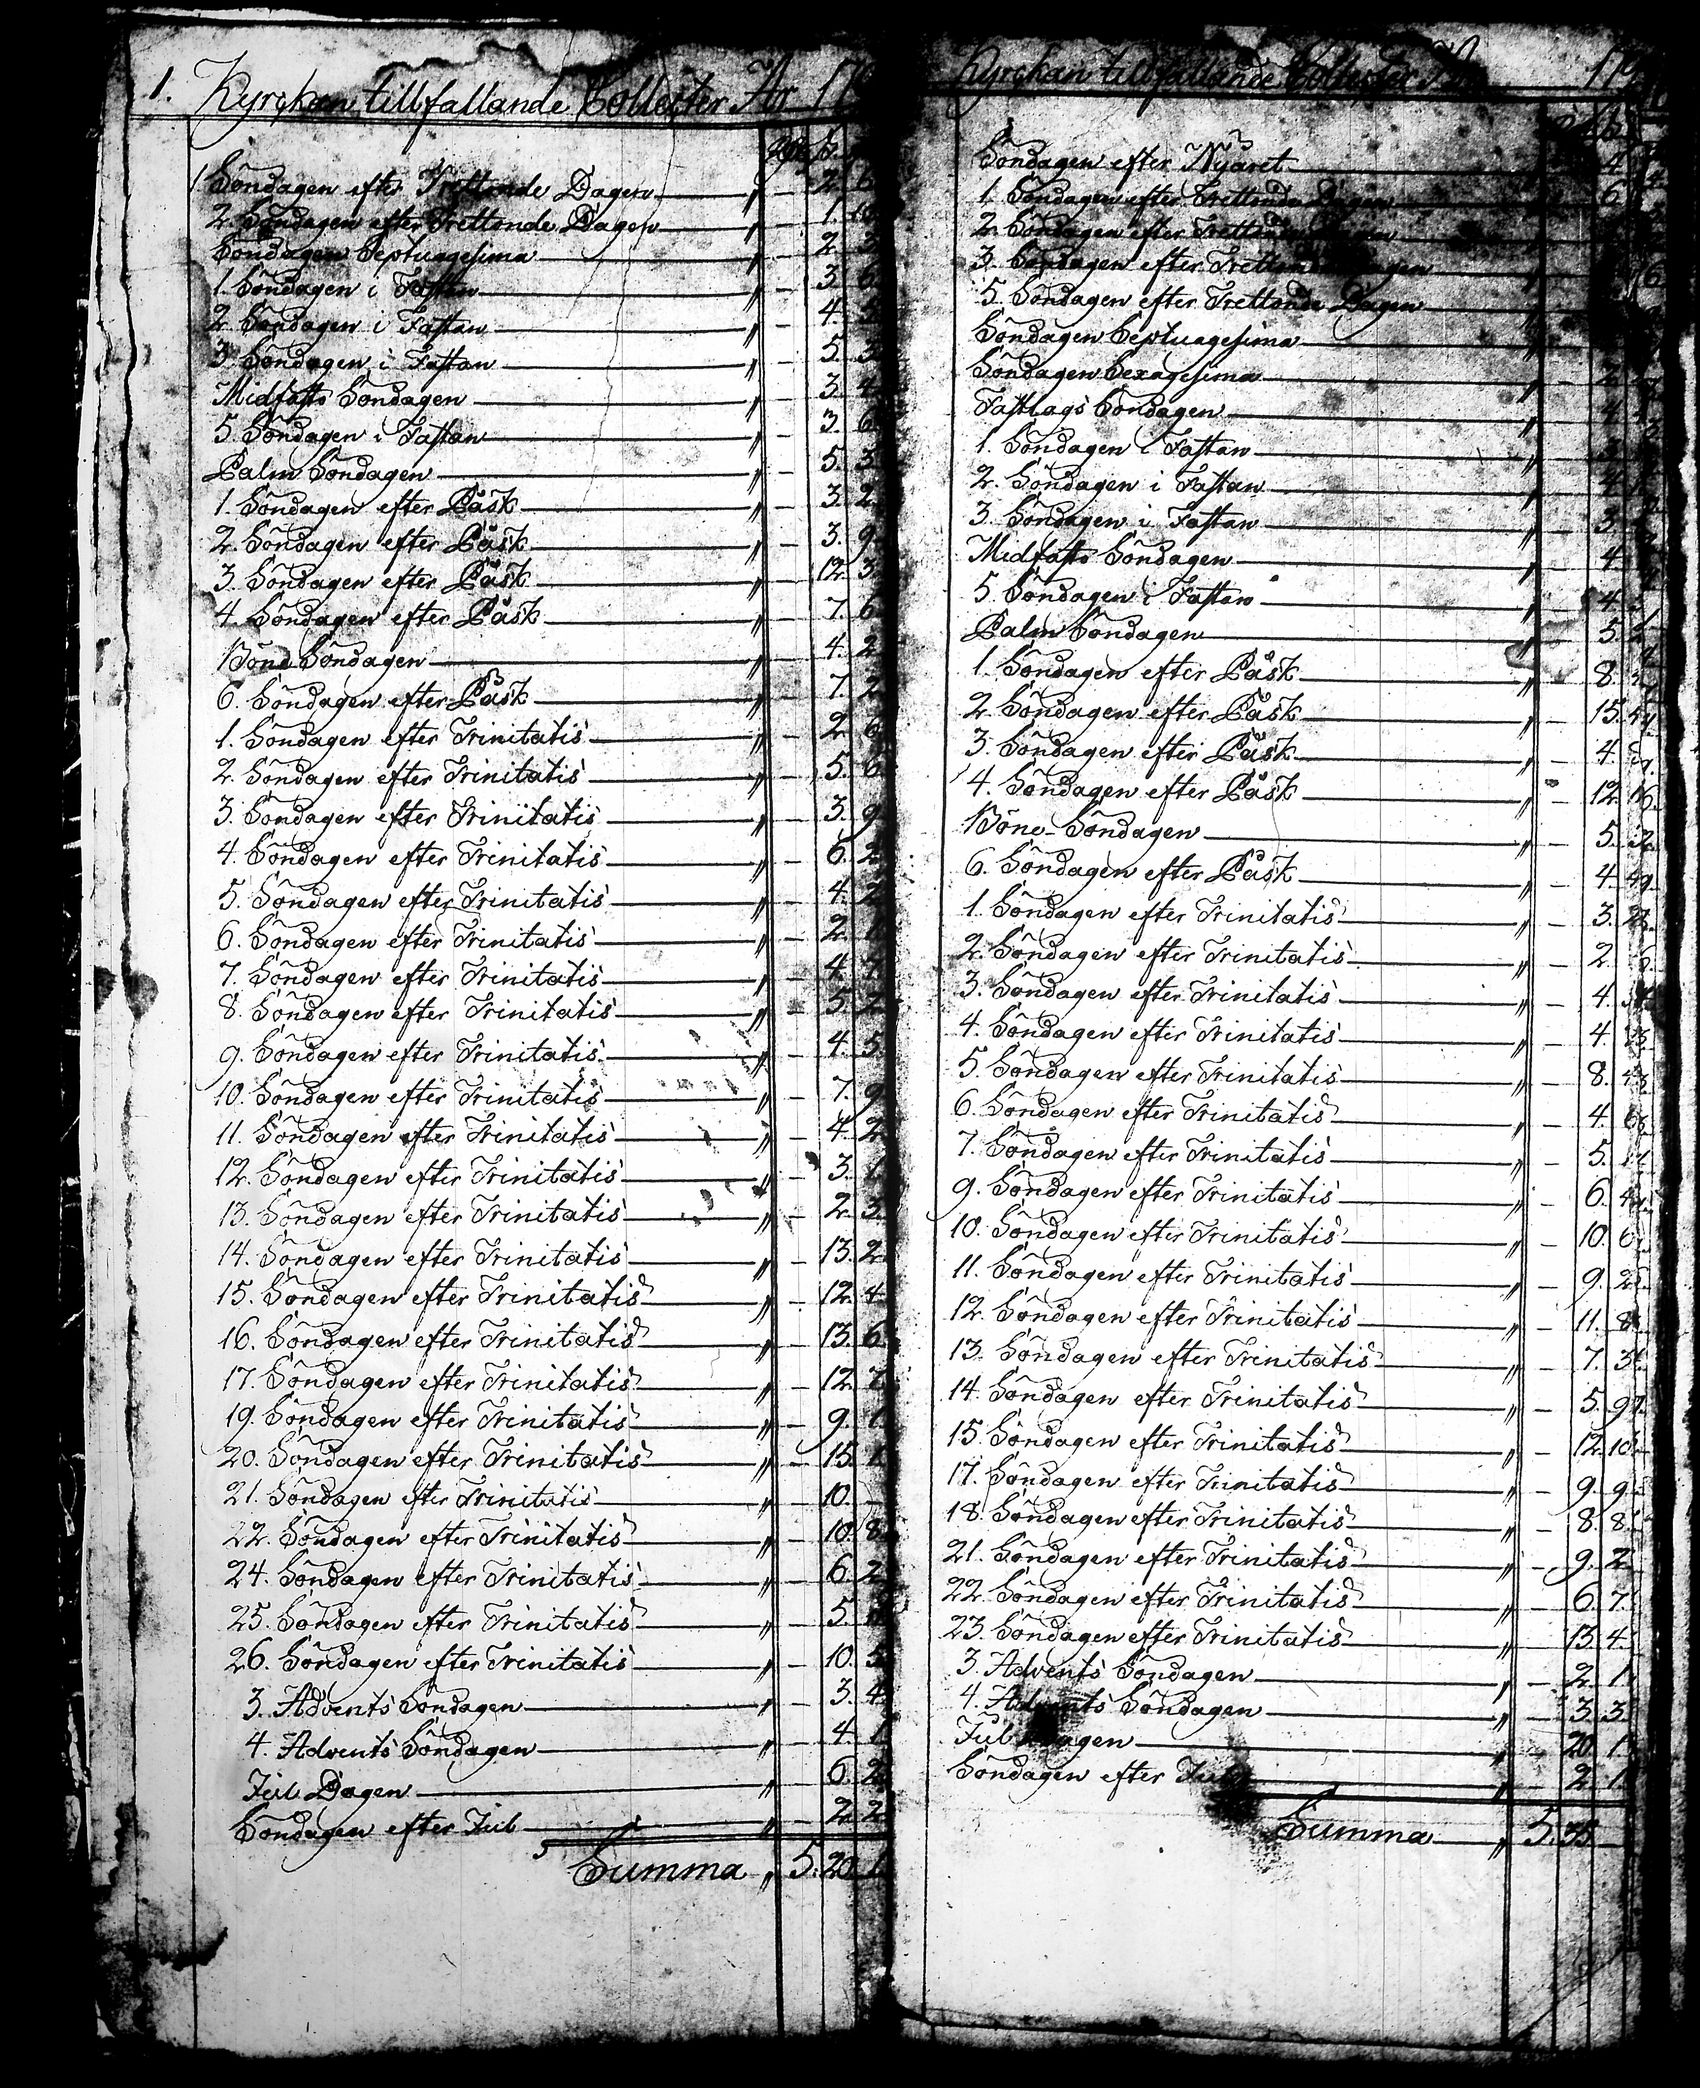 1. Kyrckan tillfallande Collecter År 17
1 Söndagen efter Trettonde Dagen — 2. 6
2. Söndagen efter Trettonde Dagen — 1. 10
Söndagen Septuagesima — 2. 3
1. Söndagen i Fastan — 3. 6
2 Söndagen i Fastan — 4. 5
3. Söndagen i Fastan — 5. 3
Midfasto Söndagen — 3. 4
5. Söndagen i Fastan — 3. 6
Palm Söndagen — 5. 3
1. Söndagen efter Påsk — 3. 2
2. Söndagen efter Påsk — 3. 9
3. Söndagen efter Påsk — 12. 3
4. Söndagen efter Påsk — 7. 6
Böne Söndagen — 4. 2
6. Söndagen efter Påsk — 7. 2
1. Söndagen efter Trinitatis — 2. 6
2. Söndagen efter Trinitatis — 5. 6
3. Söndagen efter Trinitatis — 3. 9
4. Söndagen efter Trinitatis — 6. 2
5. Söndagen efter Trinitatis — 4. 2
6. Söndagen efter Trinitatis — 2. 1
7. Söndagen efter Trinitatis — 4. 7
8. Söndagen efter Trinitatis — 5. 2
9. Söndagen efter Trinitatis — 4. 5
10. Söndagen efter Trinitatis — 7. 9
11. Söndagen efter Trinitatis — 4. 2
12. Söndagen efter Trinitatis — 3. 1
13. Söndagen efter Trinitatis — 2. 3
14. Söndagen efter Trinitatis — 13. 2
15. Söndagen efter Trinitatis — 12. 4
16. Söndagen efter Trinitatis — 13. 6
17. Söndagen efter Trinitatis — 12.
19. Söndagen efter Trinitatis — 9. 1
20. Söndagen efter Trinitatis — 15. 1
21. Söndagen efter Trinitatis — 10. —
22. Söndagen efter Trinitatis — 10. 8
24. Söndagen efter Trinitatis — 6. 2
25. Söndagen efter Trinitatis — 5.
26. Söndagen efter Trinitatis — 10. 5
3. Advents Söndagen — 3. 4
4. Advents Söndagen — 4. 1
Jul Dagen — 6. 2
Söndagen efter Jul — 2. 2
Summa 5. 20. 1
Kyrckan tillfallande Collecter 17
Söndagen efter Nyåret — 4
1. Söndagen efter Trettonde Dagen — 6
2. Söndagen efter Trettonde
3. Söndagen efter Trettonde Dagen
5. Söndagen efter Trettonde Dagen
Söndagen Septuagesima
Söndagen Sexagesima
Fastlags Söndagen — 4
1. Söndagen i Fastan
2. Söndagen i Fastan — 4
3. Söndagen i Fastan — 3
Midfasto Söndagen — 4
5. Söndagen i Fastan — 4
Palm Söndagen — 5.
1. Söndagen efter Påsk — 8.
2. Söndagen efter Påsk — 15.
3. Söndagen efter Påsk — 4.
4. Söndagen efter Påsk — 12.
Böne-Söndagen — 5.
6. Söndagen efter Påsk — 4.
1. Söndagen efter Trinitatis — 3.
2. Söndagen efter Trinitatis — 2.
3. Söndagen efter Trinitatis — 4.
4. Söndagen efter Trinitatis — 4.
5. Söndagen efter Trinitatis — 8.
6. Söndagen efter Trinitatis — 4.
7. Söndagen efter Trinitatis — 5.
9. Söndagen efter Trinitatis — 6.
10. Söndagen efter Trinitatis — 10.
11. Söndagen efter Trinitatis — 9.
12. Söndagen efter Trinitatis — 11.
13. Söndagen efter Trinitatis — 7.
14. Söndagen efter Trinitatis — 5.
15. Söndagen efter Trinitatis — 12.
17. Söndagen efter Trinitatis — 9. 9
18. Söndagen efter Trinitatis — 8. 8
21. Söndagen efter Trinitatis — 9. 2
22. Söndagen efter Trinitatis — 6. 7
23. Söndagen efter Trinitatis — 13. 4
3. Advents Söndagen — 2. 1
4. Advents Söndagen — 3. 3
Jul Dagen — 20. 1
Söndagen efter Jul — 2. 1
Summa 5. 35